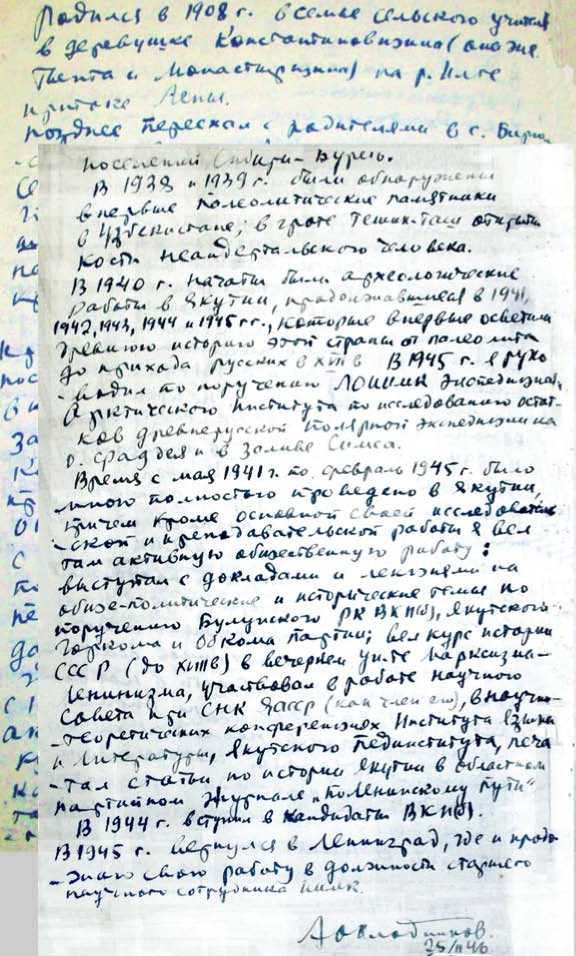 Родился в 1908 г. в семье сельского учителя
в деревушке Константиновщина (она же
Тыпта и Монастырщина) на р. Илге
притоке Лены.
Позднее переехал с родителями в с. Бирю
поселений Сибири - Бурет.
В 1938 и 1939 г. были обнаружены
впервые палеолитические памятники
в Узбекистане; в гроте Тешик-Таш открыты
кости неандертальского человека.
В 1940 г. начаты были археологические
работы в Якутии, продолжавшиеся в 1941,
1942, 1943, 1944 и 1945 г.г., которые впервые осветили
древнюю историю этой страны от палеолита
до прихода русских в XVII в В 1945 г. я руко
-водил по поручению ЛОИИМК экспедицией
Арктического Института по исследованию остат-
ков древнерусской полярной экспедиции на
о. Фаддея и в Заливе Симса.
Время с мая 1941 г. по февраль 1945 г. было
мною полностью проведено в Якутии,
причем кроме основной своей исследователь
-ской и преподавательской работы я вел
там активную общественную работу:
выступал с докладами и лекциями на
обще-политические и исторические темы по
поручению Булунского РК ВКП(б), Якутского
Горкома и Обкома партии; вел курс истории
СССР (до XVII в) в вечернем ун-те Марксизма-
Ленинизма, участвовал в работе научного
Совета при СНК ЯАССР (как член его), в научно-
-теоретических конференциях Института Языка
и Литературы, Якутского Пединститута, печа
-тал статьи по истории Якутии в областном
партийном журнале „По Ленинскому пути“
В 1944 г. вступил в кандидаты ВКП(б).
В 1945 г. вернулся в Ленинград, где и продол
-жаю свою работу в должности старшего
научного сотрудника ИИМК.
А Окладников.
25/II 46